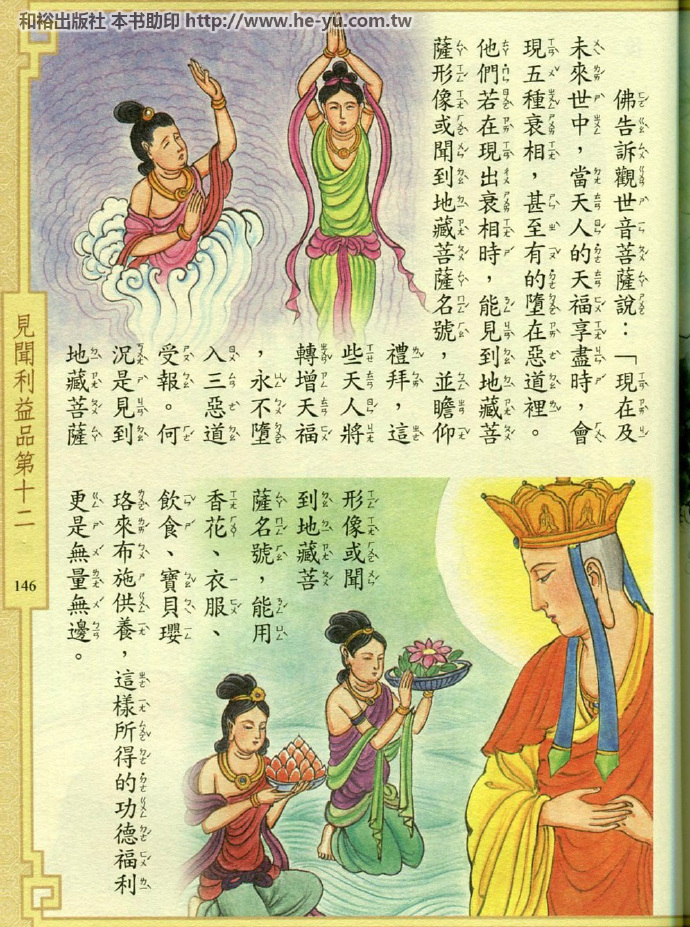 和裕出版社 本書助印 http://www.he-yu.com.tw
佛告訴觀世音菩薩說：「現在及
未來世中，當天人的天福享盡時，會
現五種衰相，甚至有的墮在惡道裡。
他們若在現出衰相時，能見到地藏菩
薩形像或聞到地藏菩薩名號，並瞻仰
禮拜，這
些天人將
轉增天福
，永不墮
入三惡道
受報。何
況是見到
地藏菩薩
形像或聞
到地藏菩
薩名號，能用
香花、衣服、
飲食、寶貝瓔
珞來布施供養，這樣所得的功德福利
更是無量無邊。
見聞利益品第十二
146